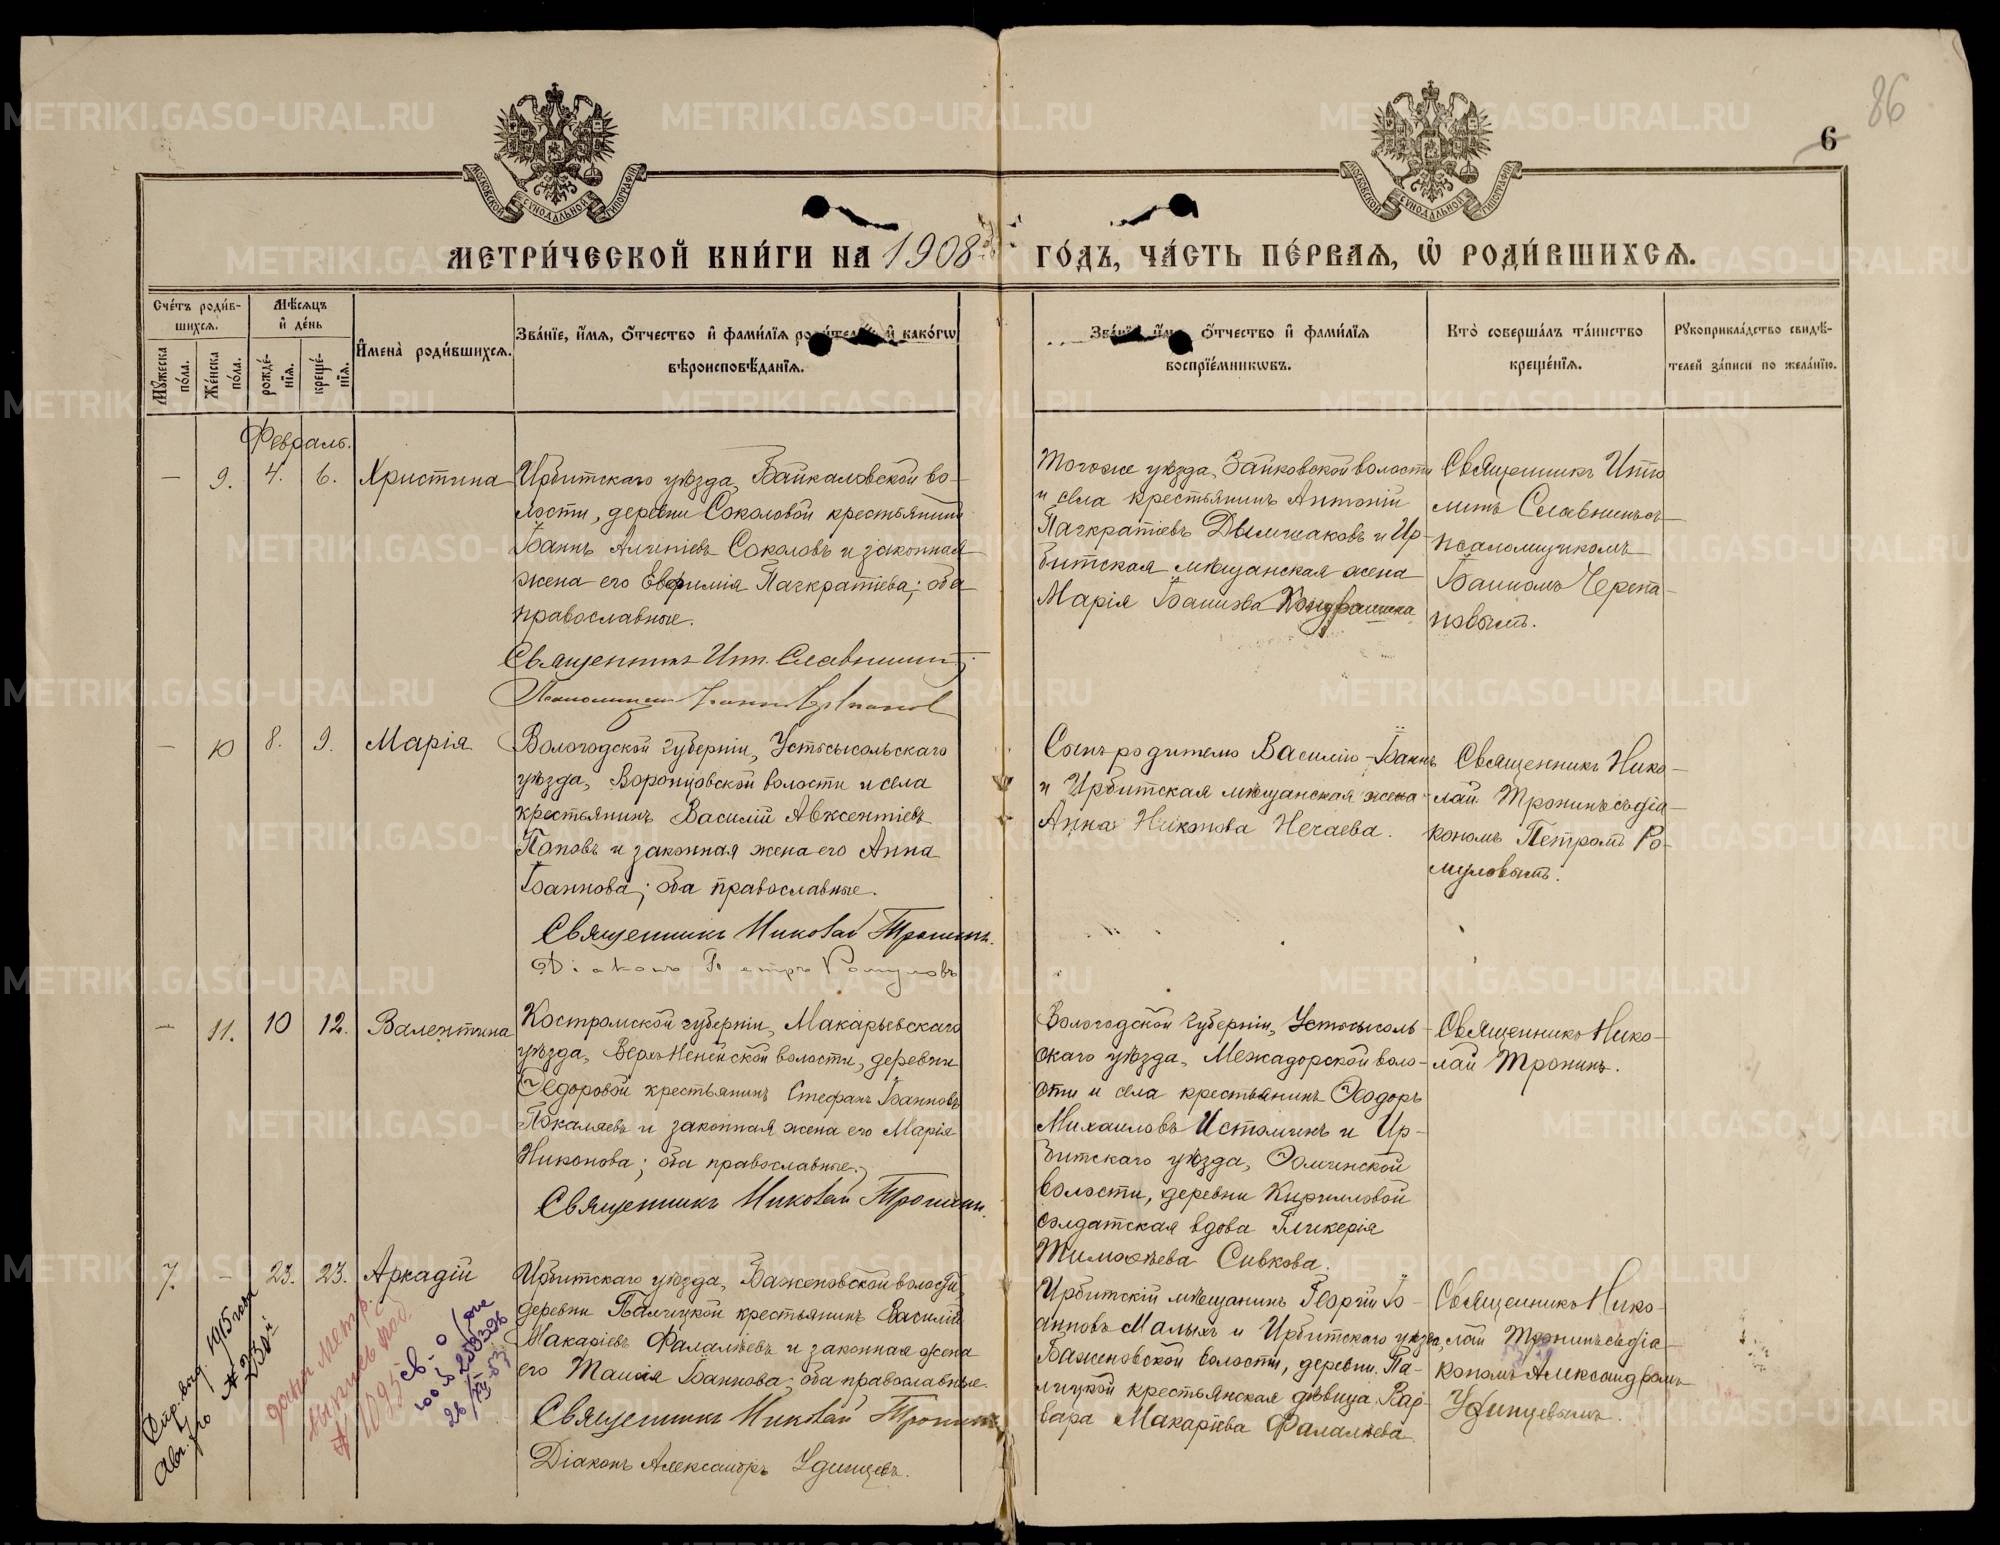 86
6
МОСКОВСКОЙ СѴНОДАЛЬНОЙ ТИПОГРАФІИ
МОСКОВСКОЙ СѴНОДАЛЬНОЙ ТИПОГРАФІИ
МЕТРИ́ЧЕСКОЙ КНИ́ГИ НА 1908 ГО́ДЪ, ЧА́СТЬ ПЕ́РВАѦ, Ѡ҆ РОДИ́ВШИХСѦ.
Сче́тъ роди́в-
шихсѧ.
Мѣ́сѧцъ
и҆ де́нь
Мꙋ́жеска по́ла.
Же́нска по́ла.
рожде́-
нїѧ.
креще́-
нїѧ.
И҆мена̀ роди́вшихсѧ.
Зва́нїе, и҆́мѧ, ѻ҆́тчество и҆ фами́лїѧ роди́телей, и҆ како́гѡ
вѣроисповѣ́данїѧ.
Зва́нїе, и҆́мѧ, ѻ҆́тчество и҆ фами́лїѧ
воспрїе́мникѡвъ.
Кто̀ соверша́лъ та́инство
креще́нїѧ.
Рꙋкоприкла́дство свидѣ́-
телей за́писи по жела́нїю.
Февраль.
— 9. 4. 6. Христина
Ирбитскаго уѣзда, Байкаловской во-
лости, деревни Соколовой крестьянинъ
Іоаннъ Соколовъ и законная
жена его Евфимія Панкратіева; оба
православные.
Священникъ Ипп. Славнинъ
Псаломщикъ Іоаннъ Черепановъ
Тогоже уѣзда, Зайковской волости
и села крестьянинъ Антоній
Панкратіевъ и Ир-
битская мѣщанская жена
Марія Іоаннова
Священникъ Иппо
литъ Славнинъ съ
псаломщикомъ
Іоанномъ Черепа-
новымъ.
— 10 8. 9. Марія
Вологодской губерніи, Устьсысольскаго
уѣзда, Воронцовской волости и села
крестьянинъ Василій Авксентіевъ
Поповъ и законная жена его Анна
Іоаннова; оба православные.
Священникъ Николай Тронинъ.
Діаконъ Петръ Ромуловъ
Сынъ родителю Василію – Іоаннъ
и Ирбитская мѣщанская жена
Анна Никонова Нечаева.
Священникъ Нико-
лай Тронинъ съ діа-
кономъ Петромъ Ро-
муловымъ.
— 11. 10 12. Валентина
Костромской губерніи, Макарьевскаго
уѣзда, волости, деревни
Ѳедоровой крестьянинъ Стефанъ Іоанновъ
и законная жена его Марія
Никонова; оба православные.
Священникъ Николай Тронинъ.
Вологодской губерніи, Устьсысоль-
скаго уѣзда, Межадорской воло-
сти и села крестьянинъ Ѳеодоръ
Михаиловъ Истоминъ и Ир-
битскаго уѣзда, волости, деревни Кирилловой
солдатская вдова Гликерія
Тимоѳѣева Сивкова.
Священникъ Нико-
лай Тронинъ.
7. – 23. 23. Аркадій
Ирбитскаго уѣзда, Баженовской волости,
деревни крестьянинъ Василій
Макаріевъ Фалалѣевъ и законная жена
его Таисія Іоаннова; оба православные.
Священникъ Николай Тронинъ
Діаконъ Александръ Удинцевъ.
Ирбитскій мѣщанинъ Георгій Іо-
анновъ Малыхъ и Ирбитскаго уѣзда,
Баженовской волости, деревни Па-
лицкой крестьянская дѣвица Вар-
вара Макаріева Фалалѣева
Священникъ Нико-
лай Тронинъ съ діа-
кономъ Александромъ
Удинцевымъ.
1915 года
№ 230й
№ 1095
METRIKI.GASO-URAL.RU